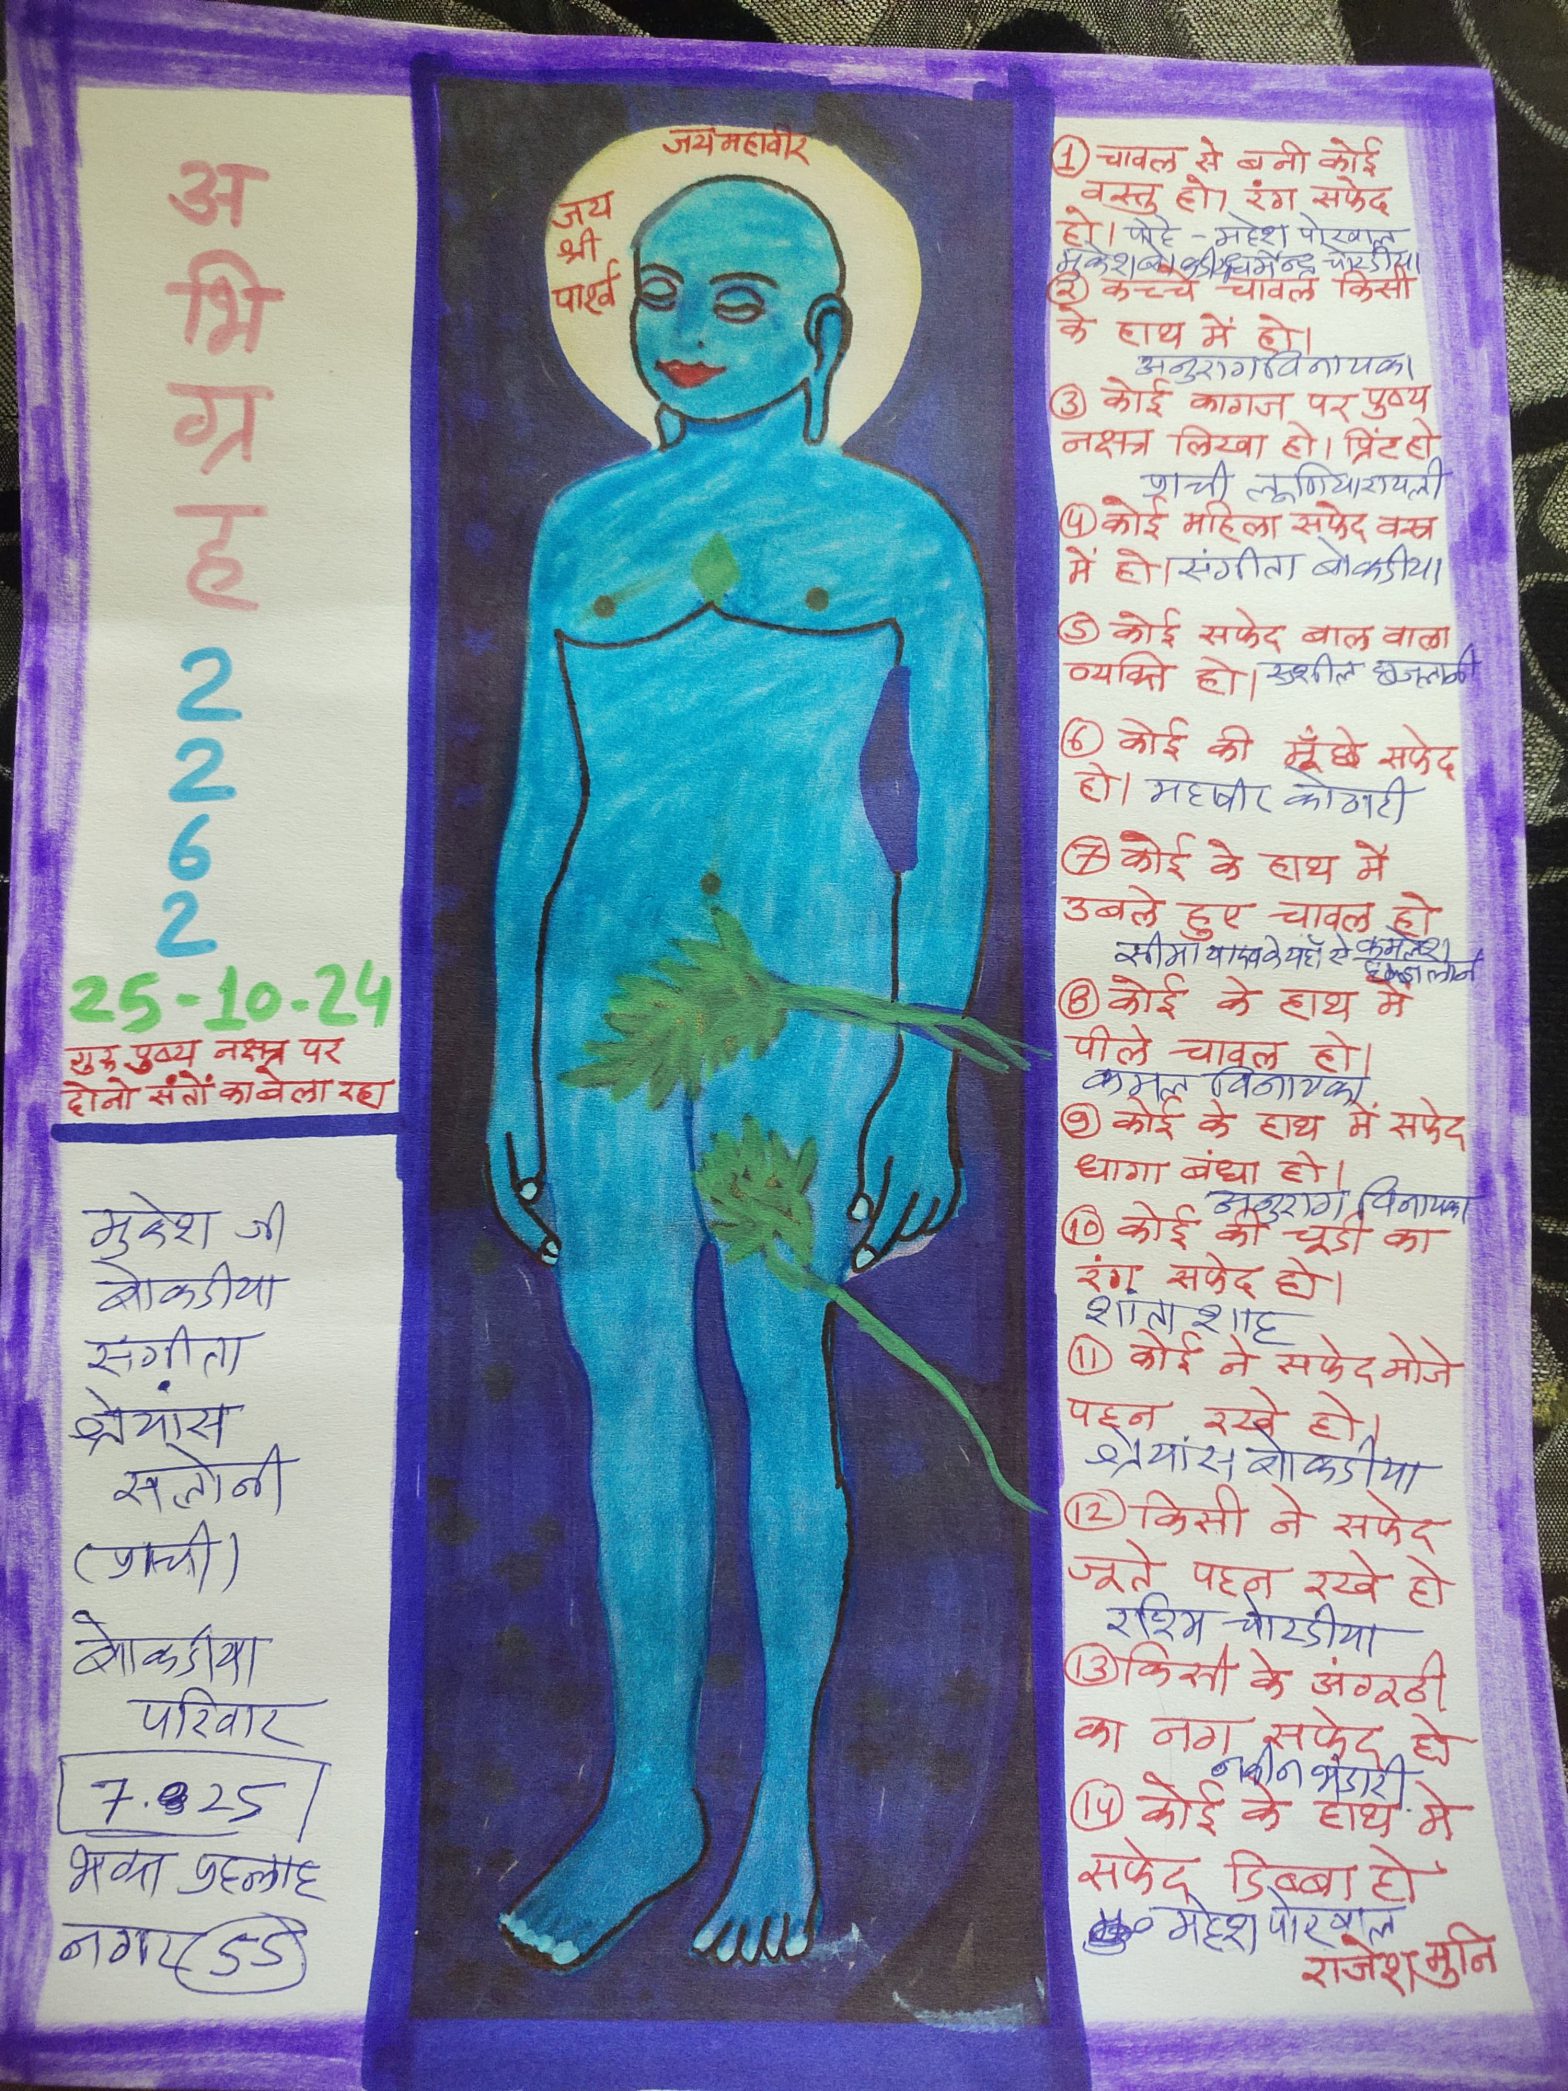 अभिग्रह
2262
25-10-24
गुरु पुष्य नक्षत्र पर
दोनो संतों का बेला रहा
मुकेश जी
बोकडीया
संगीता
श्रेयांस
सलोनी
(प्राची)
बोकडीया
परिवार
7. 25
भक्त प्रहलाद
नगर 55
जय महावीर
जय
श्री
पार्श्व
① चावल से बनी कोई
वस्तु हो। रंग सफेद
हो। पोहे - महेश पोरवाल
मुकेश बोकडीया धर्मेन्द्र चोरडीया
② कच्चे चावल किसी
के हाथ में हो।
अनुराग विनायका
③ कोई कागज पर पुष्य
नक्षत्र लिखा हो। प्रिंट हो
प्राची लूणिया
④ कोई महिला सफेद वस्त्र
में हो। संगीता बोकडीया
⑤ कोई सफेद बाल वाला
व्यक्ति हो। सुशील छजलानी
⑥ कोई की मूँछे सफेद
हो। महावीर कोठारी
⑦ कोई के हाथ में
उबले हुए चावल हो
सीमा यादव के यहाँ से कमलेश
छजलानी
⑧ कोई के हाथ में
पीले चावल हो।
कमल विनायका
⑨ कोई के हाथ में सफेद
धागा बंधा हो।
अनुराग विनायका
⑩ कोई की चूडी का
रंग सफेद हो।
शांता शाह
⑪ कोई ने सफेद मोजे
पहन रखे हो।
श्रेयांस बोकडीया
⑫ किसी ने सफेद
जूते पहन रखे हो
रश्मि चोरडीया
⑬ किसी के अंगूठी
का नग सफेद हो
नवीन भंडारी
⑭ कोई के हाथ में
सफेद डिब्बा हो
महेश पोरवाल
राजेश मुनि